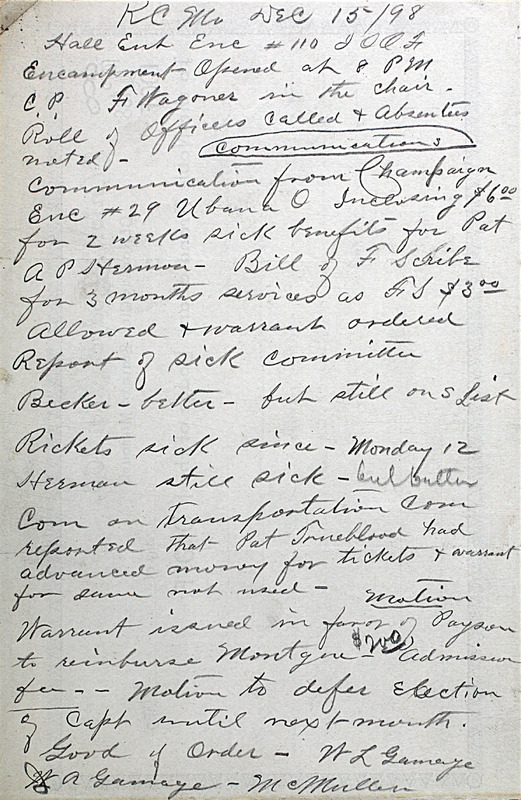 KC Mo Dec 15/98
Hall Ent Enc #110 I O O F
Encampment Opened at 8 PM
C.P. F Wagoner in the chair.
Roll of Officers called & Absentees
noted -
Communications
Communication from Champaign
Enc #29 Ubana O Inclosing $6.00
for 2 weeks sick benefits for Pat
A P Hermon - Bill of F Scribe
for 3 months services as F S $3.00
allowed & warrant ordered
Report of sick committee
Becker - better - but still on s List
Rickets sick since - Monday 12
Herman still sick - but better
Com on transportation Com
reported that Pat Trueblood had
advanced money for tickets & warrant
for same not used - Motion
Warrant issued in favor of Payson
to reimburse Montgue - $2.00 Admission
fee - - Motion to defer Election
of Capt until next month.
Good of Order - W L Gamage
W A Gamage - McMullen